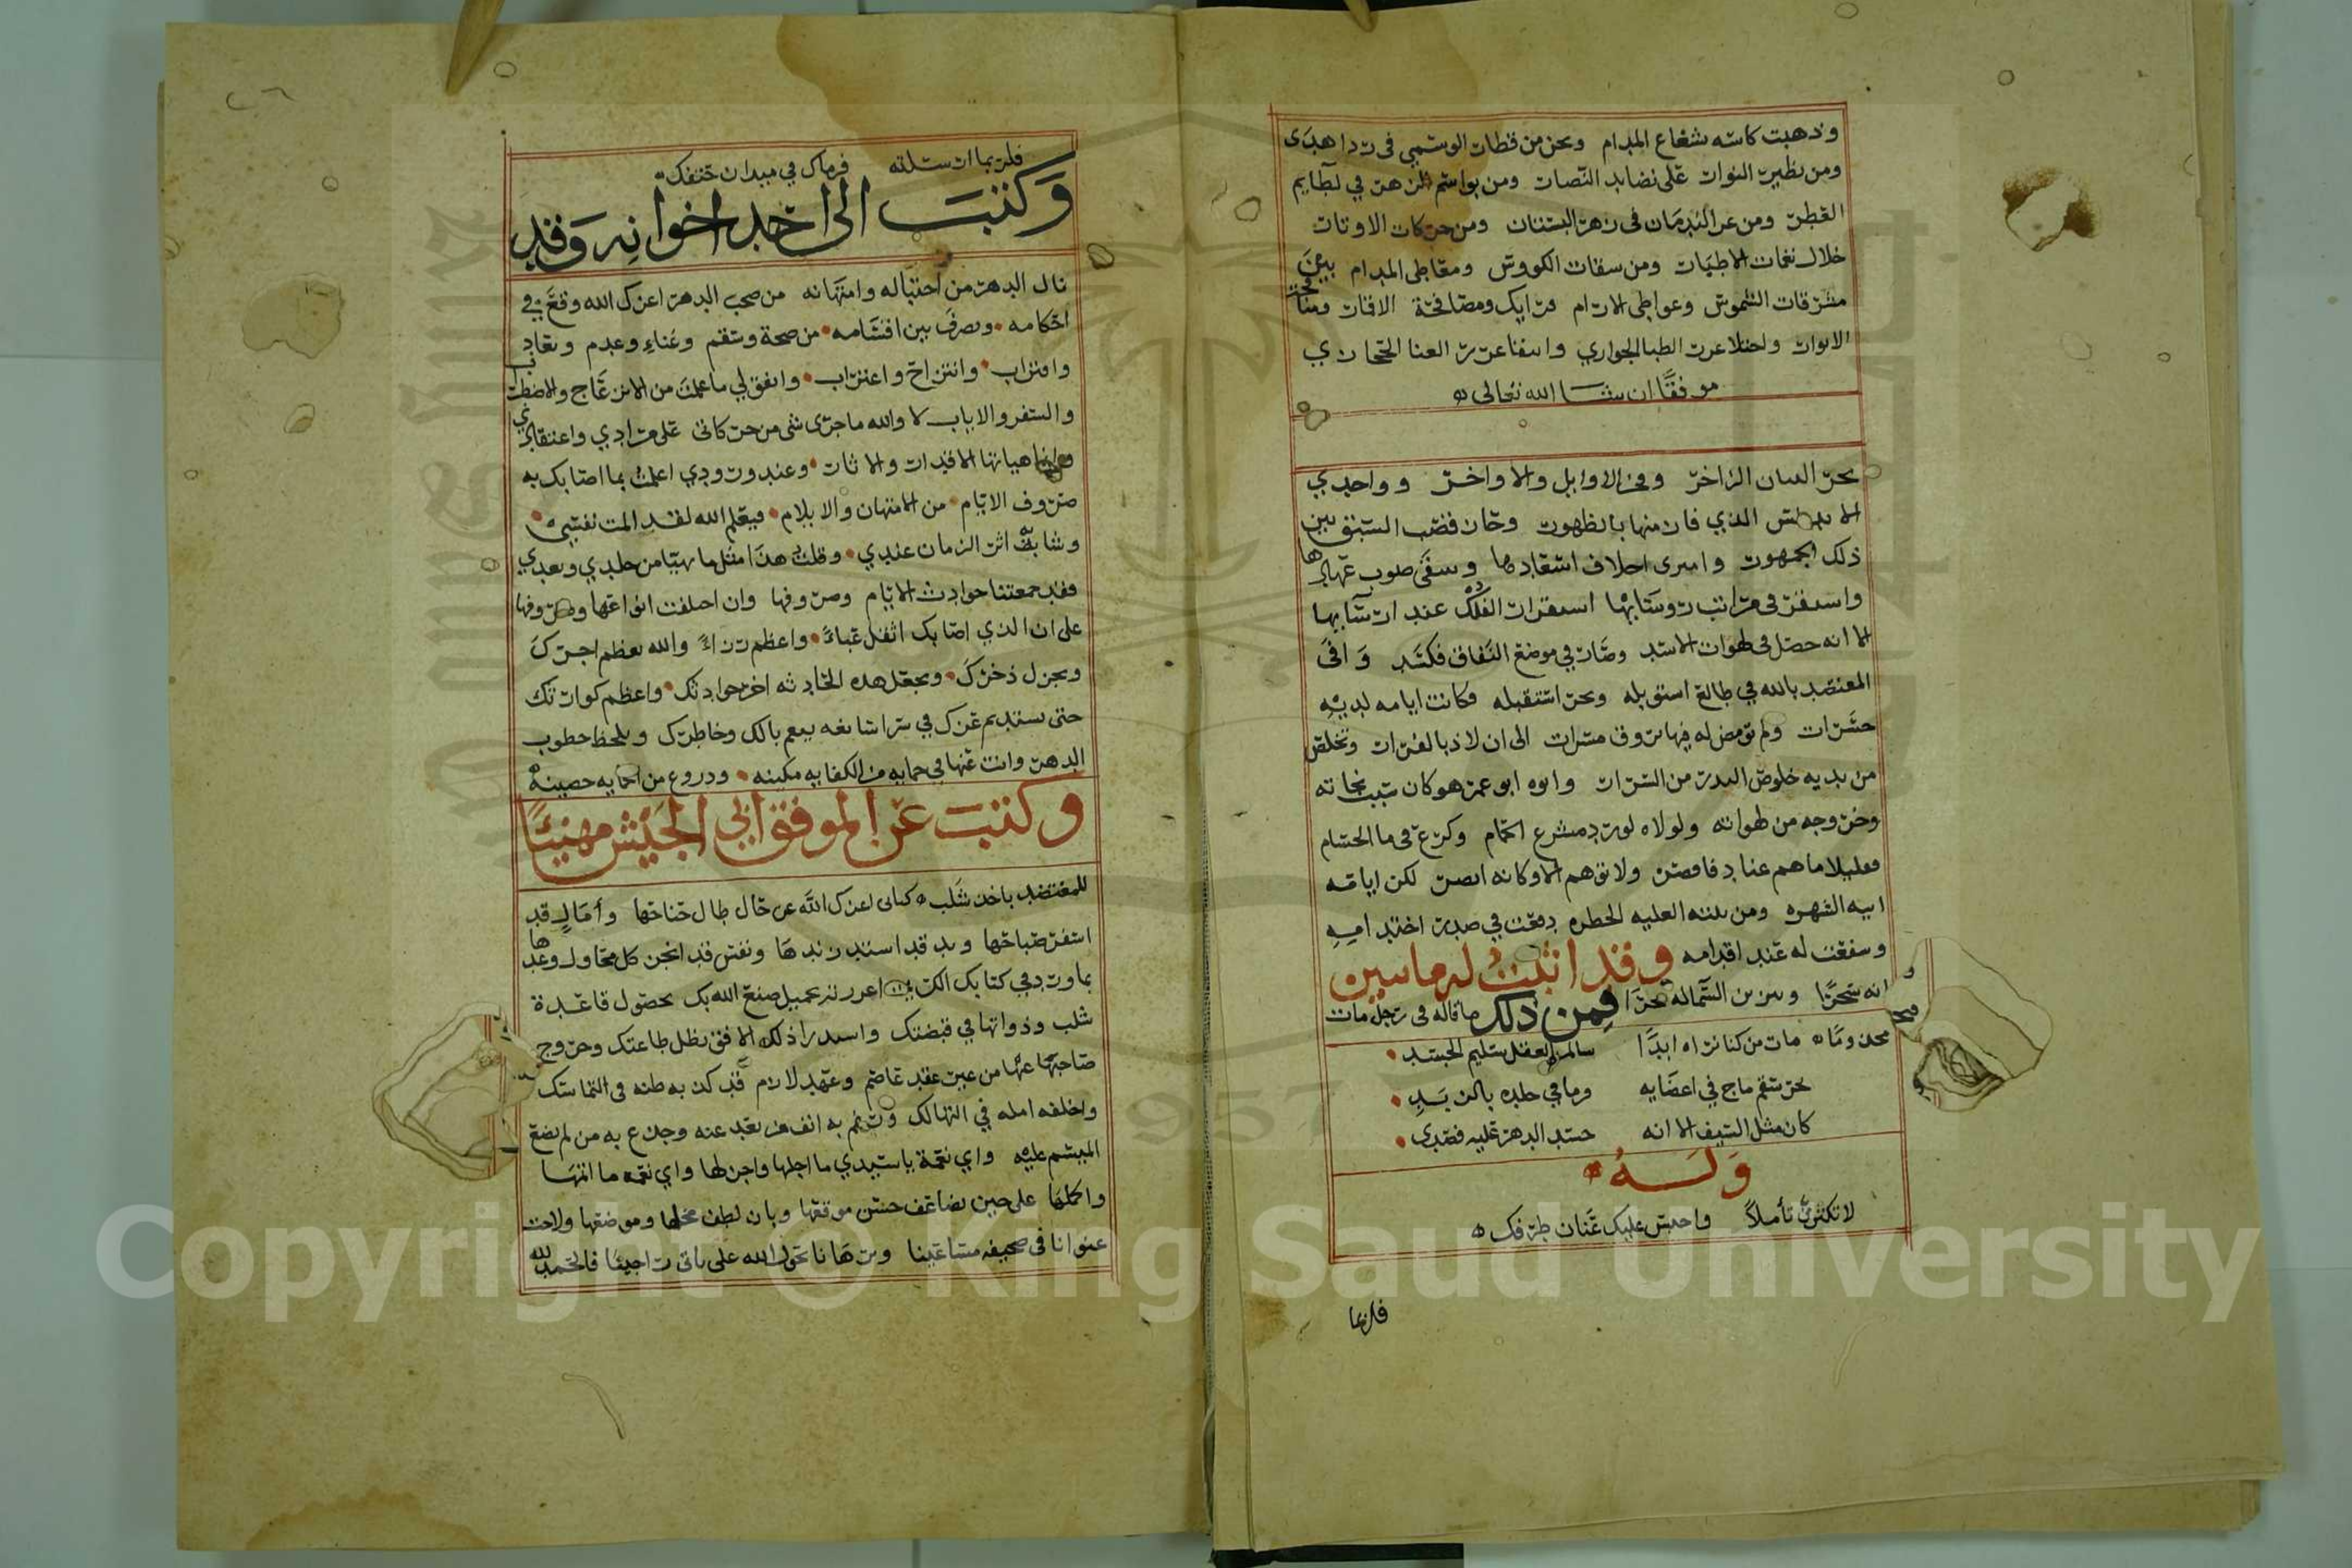 وذهبت كاسه شعاع المدام ونحن من قطار الوسمي في ردا هدى
ومن نظير النوار على نضايد النضار ومن بواسم الزهر في لطايم
القطر ومن غر الندمان في زهر البستان ومن حركات الاوتار
خلال نغمات الاطيار ومن سقات الكووس ومعاطي المدام بين
مشرقات الشموس وعواطي الارام فرايك ومصافحة الاقمار ومنافحة
الانوار واجتلا غرر الظبا الجواري وانتقا غرر الغنا الحجازي
موفقا ان شا الله تعالى
بحر البيان الزاخر وفخر الاوايل والاواخر وواحد
الاندلس الذي فاز منها بالظهور وحاز قصب السبق بين
ذلك الجمهور وامترى اخلاف اسعادها وسقى صوب عهادها
واستقر في مراتب روسايها استقرار الفلك عند ارسايها
الا انه حصل في لهوات الاسد وصار في موضع النفاق فكسد وافى
المعتضد بالله في طالع استوبله ونحر استقبله فكانت ايامه لديه
حسرات ولم تومض له فيها بروق مسرات الى ان لاذ بالفرار وتخلص
من يديه خلوص البدر من السرار وابوه ابو عمر هو كان سبب نجاته
وخروجه من لهواته ولولاه لورد مشرع الحمام وكرع في ما الحسام
فقليلا ما هم عناد فاقصر ولا توهم الا وكانه ابصر لكن اباقه
ابيه الشهيره ومن بنته العليه الخطيره دفعت في صدر اخته امه
وشفعت له عند اقدامه وقد اثبت له ما يبين
انه سحرا وبين من الشماله نحرا فمن ذلك ما قاله في رجل مات
مجذوما مات من كنا نراه ابدا سالم العقل سليم الجسد
بحر سقم ماج في اعضايه فرما في جلده بالزبد
كان مثل السيف الا انه حسد الدهر عليه فصدى
وله
لا تكثرن تأملا واحبس عليك عنان طرفك
فلربما
٢٦
فلربما ارسلته فرماك في ميدان حتفك
وكتب الى احد اخوانه وقد
نال الدهر من احتباله وامتهانه من صحب الدهر اعزك الله وقع في
احكامه وتصرف بين اقسامه من صحة وسقم وغناء وعدم وبعاد
واقتراب وانتزاح واغتراب واتفق لي ما علمت من الانزعاج والاضطراب
والسفر والاياب لا والله ما جرى شي من حركاتي على مرادي واعتقادي
وانما هياتها الاقدار والاثار وعند ورودي اعلمت بما اصابك به
صروف الايام من الامتهان والايلام فيعلم الله لقد المت نفسي
وشابهت اثر الزمان عندي وقلت هذا مثل ما تهيا من جلدي وبعدي
فقد جمعتنا حوادث الايام وصروفها وان اختلفت انواعها وضروفها
على ان الذي اصابك اثقل عباء واعظم رزاء والله يعظم اجرك
ويجزل ذخرك ويجعل هذه الحادثه اخر حوادثك واعظم كوارثك
حتى يستديم عزك في سرا شايعه ينعم بالك وخاطرك ويلحظ خطوب
الدهر وانت عنها في حمايه من الكفايه مكينه ودروع من الحمايه حصينه
وكتب عن الموفق ابي الجيش مهنيا
للمعتضد باخذ شلب كتابى اعزك الله عن حال طال جناحها وأمال قد
اسفر صباحها ويد قد اشتد زندها ونفس قد انجز كل محاول وعدها
بما ورد في كتابك الكريم اعزرنيه بجميل صنع الله بك بحصول قاعدة
شلب وذواتها في قبضتك واستدرا ذلك الافق بظل طاعتك وخروج
صاحبها عنها من غير عقد عاصم وعهد لازم قد كذبه ظنه في التماسك
واخلفه امله في التهالك ورغم به انف من بعد عنه وجدع به من لم يضع
الميسم عليه واي نعمة يا سيدي ما اجلها واجزلها واي نعمه ما اتمها
واكملها على حين تضاعف حسن موقعها وبان لطف محلها وموضعها ولاحت
عنوانا في صحيفه مساعينا وبرهانا تحول الله على باقي راجينا فالحمد لله
Copyright © King Saud University
1957